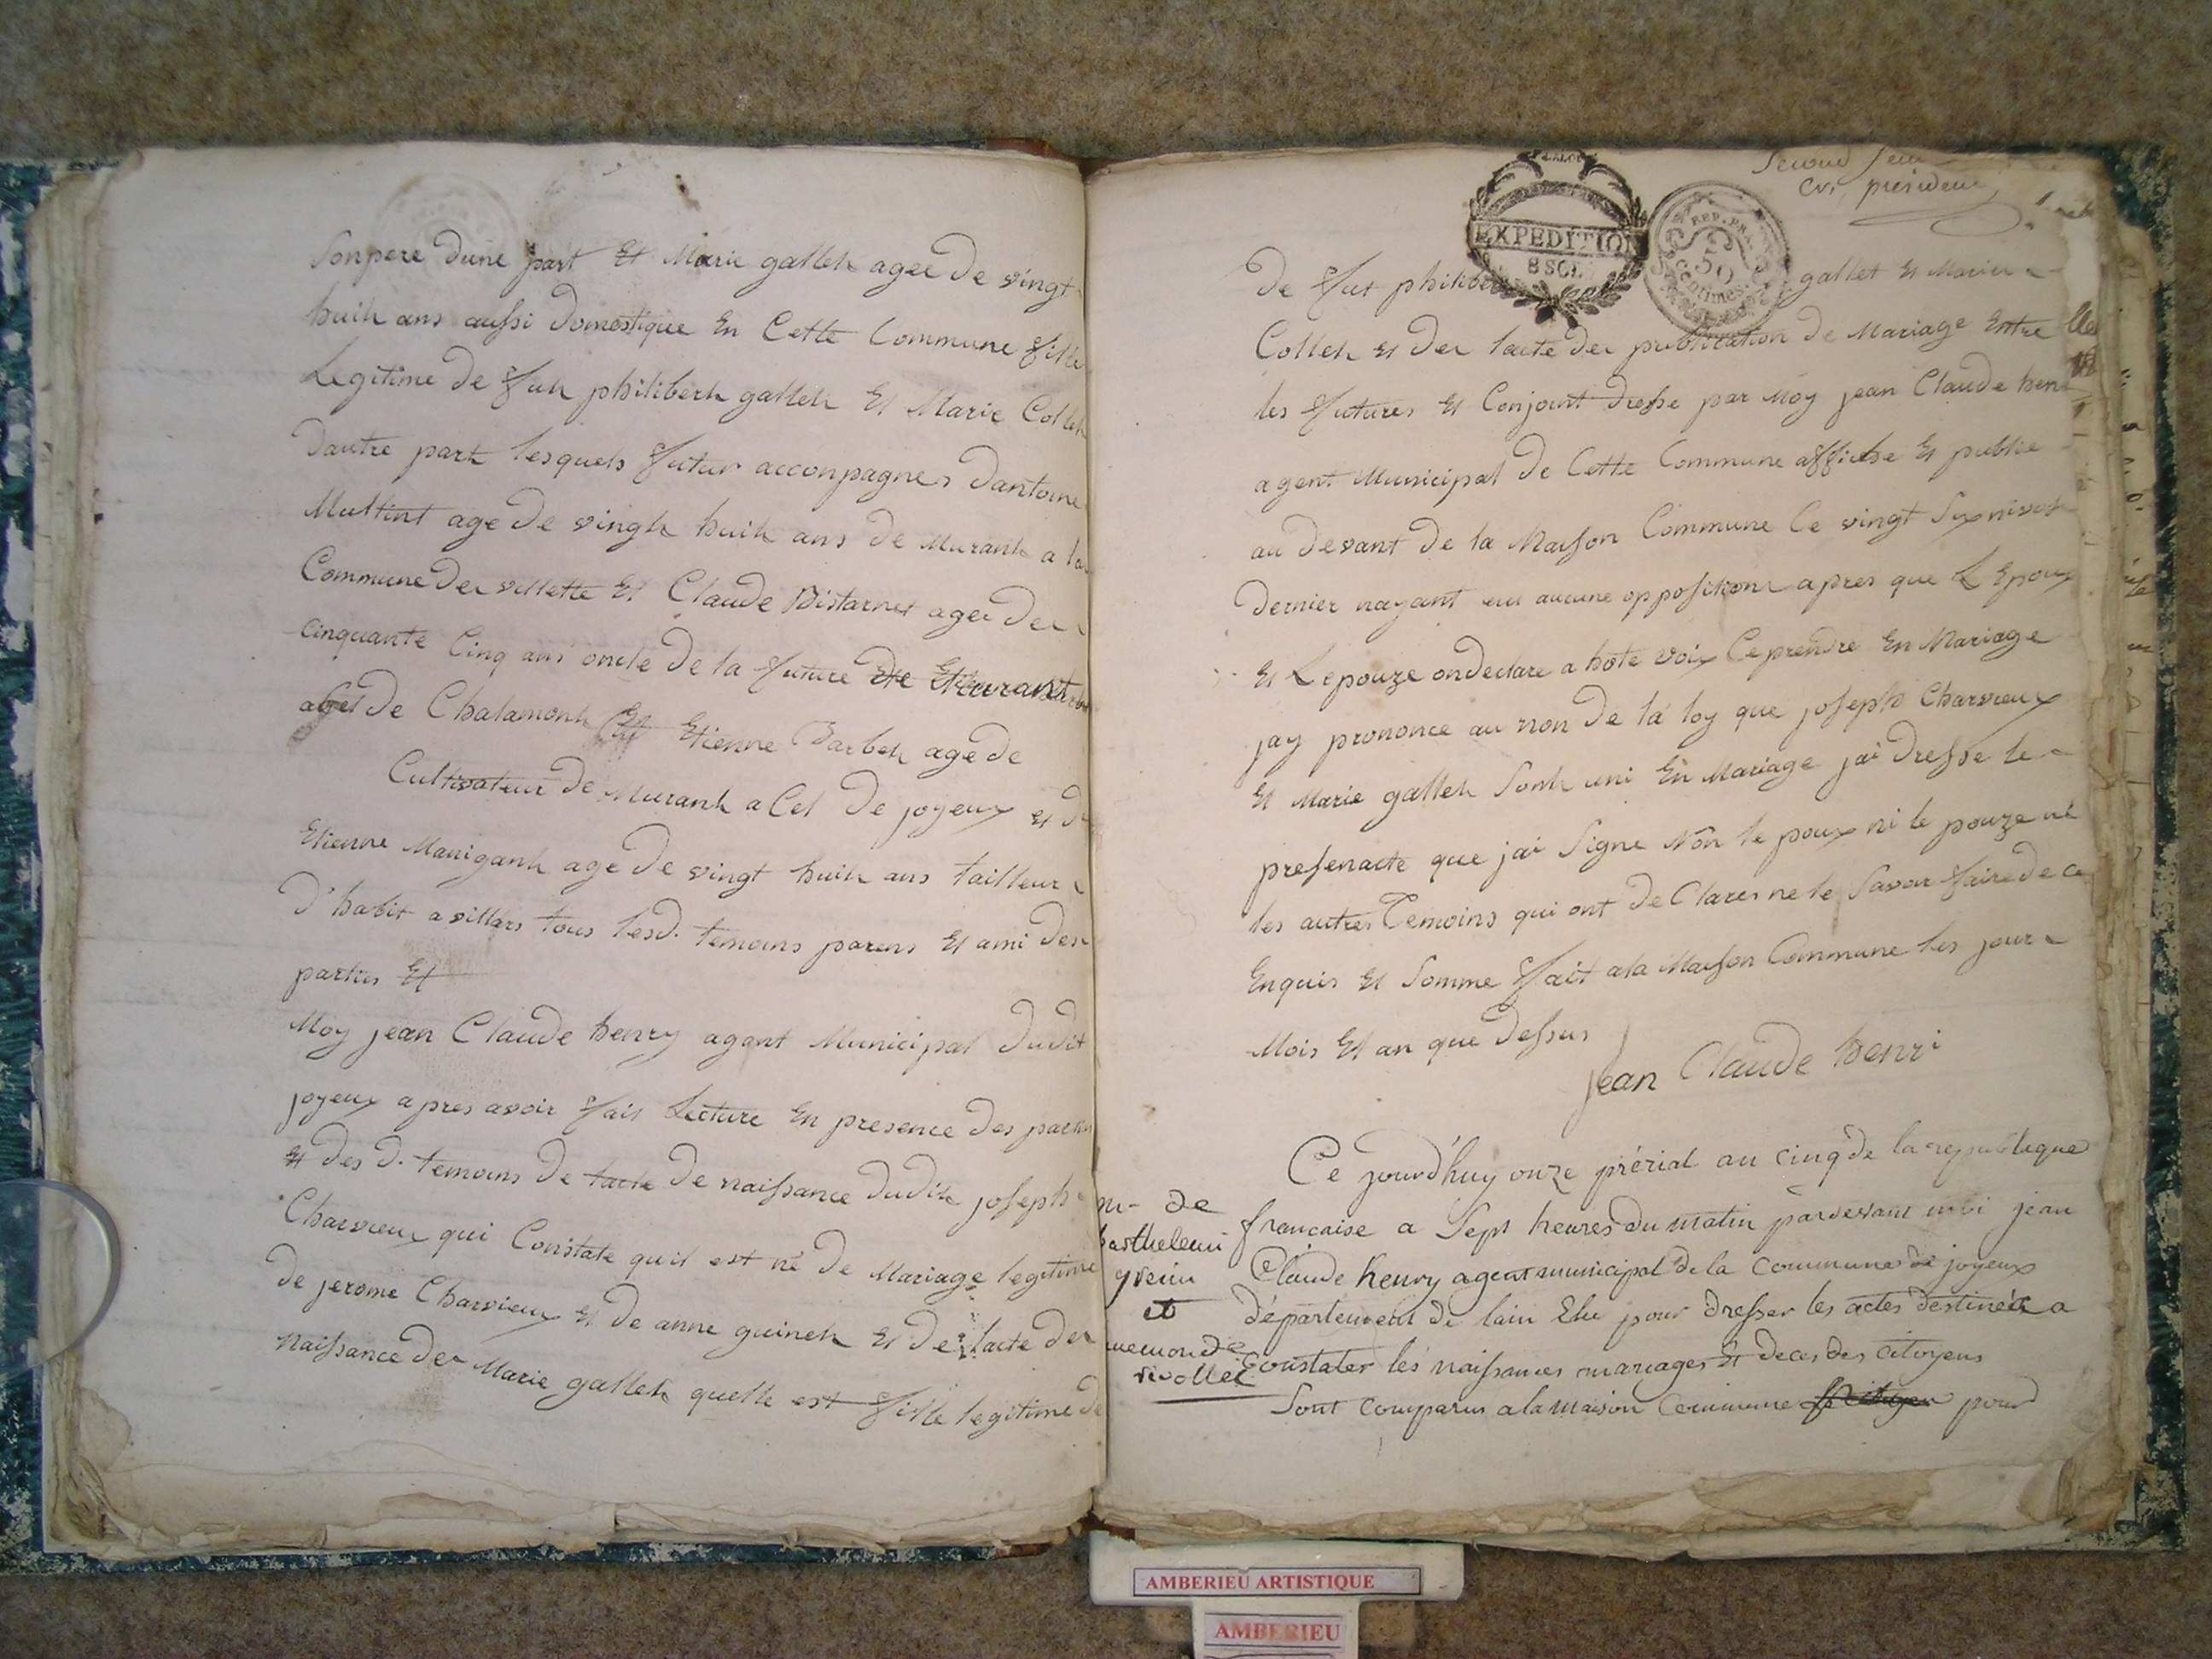 Sonpere dune part Et Marie gallet agee De vingt
huit ans aussi Domestique En Cette Commune fille
Legitime De fut philibert gallet Et Marie Collet
Dautre part lesquels futur acconpagnes Dantoine
Multint age De vingt huit ans De Murant a la
Commune De villette Et Claude Bistarnet agee De
cinquante Cinq ans oncle De la future
De Chalamont Etienne Barbet age De
Cultivateur De Murant a Cel De joyeux et d
Etienne Manigant age De vingt huit ans tailleur
D'habit a villars tous lesd. temoins parens Et ami des
parties Et
Moy jean Claude henry agant Municipal Dudit
joyeux apres avoir fait Lecture En presence Des partie
Et Des D. temoins De lacte De naissance Dudit joseph
Charvieux qui Constate quil est né De Mariage legitime
De jerome Charvieux Et De anne guinet Et De lacte De
naissance De Marie gallet quelle est fille legitime De
Second
président
EXPEDITION
8 SOLS
REP. FRA.
50
Centimes
De fut philibert gallet Et Marie
Collet Et De lacte De publication De Mariage Entre
les futures Et Conjoint Dresse par Moy jean Claude hen
agent Municipal De Cette Commune affiche Et publie
au Devant De la Maison Commune le vingt Six nivos
Dernier nayant eu aucune opposition apres que L Epoux
Et Lepouze on declare a hote voix Ceprendre En Mariage
jay prononce au non De la loy que joseph Charvieux
Et Marie gallet Sont uni En Mariage jai Dresse le
presenacte que jai Signe Non le poux ni le pouze né
les autres Temoins qui ont De Clares ne le Savoir faire De ce
Enquis Et Somme fait a la Maison Commune les jour
Mois Et an que Dessus
jean Claude henri
m- de
barthelemi
grenu
et
rivollet
Ce jourd'huy onze prérial an cinq de la republique
francaise a Sept heures Du matin pardevant moi jean
Claude henry agent municipal de la commune de joyeux
département de lain Elu pour dresser les actes destinés a
constater les naissances mariages Et deces des citoyens
Sont comparus a la maison Commune pour
AMBERIEU ARTISTIQUE
AMBERIEU